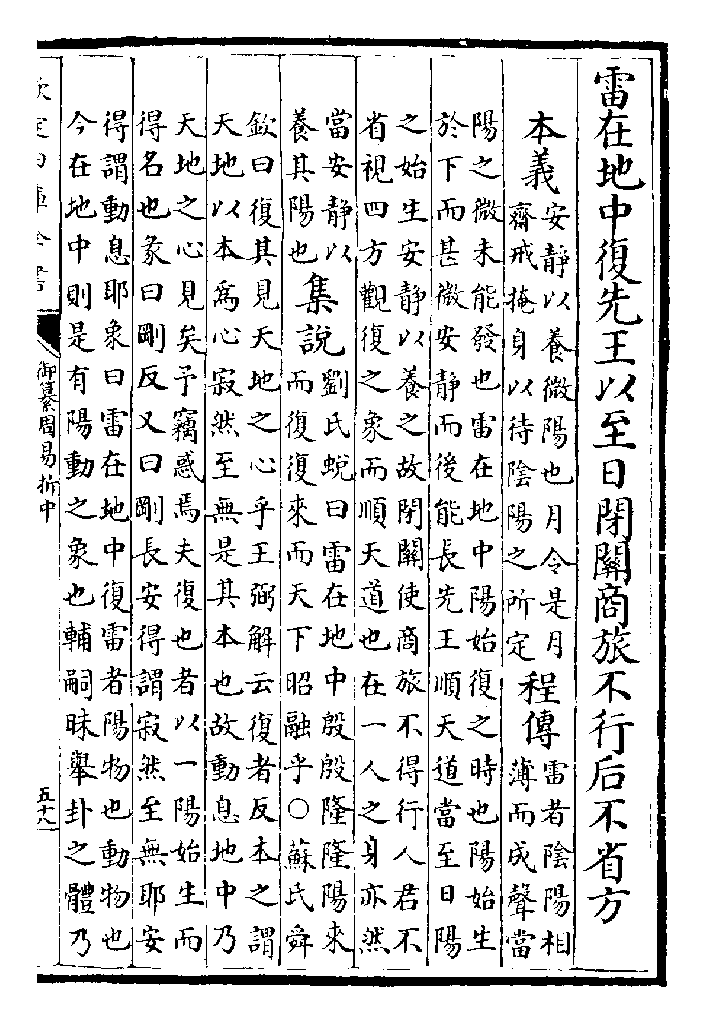 雷在地中復先王以至日閉關商旅不行后不省方
本義
安靜以養微陽也月令是月
齋戒掩身以待陰陽之所定
程傳
雷者陰陽相
薄而成聲當
陽之微未能發也雷在地中陽始復之時也陽始生
於下而甚微安靜而後能長先王順天道當至日陽
之始生安靜以養之故閉關使商旅不得行人君不
省視四方觀復之象而順天道也在一人之身亦然
當安靜以
養其陽也
集說
劉氏蛻曰雷在地中殷殷隆隆陽來
而復復來而天下昭融乎○蘇氏舜
欽曰復其見天地之心乎王弼解云復者反本之謂
天地以本為心寂然至無是其本也故動息地中乃
天地之心見矣予竊惑焉夫復也者以一陽始生而
得名也彖曰剛反又曰剛長安得謂寂然至無耶安
得謂動息耶象曰雷在地中復雷者陽物也動物也
今在地中則是有陽動之象也輔嗣昧舉卦之體乃
欽定四庫全書
御纂周易折中
五十八